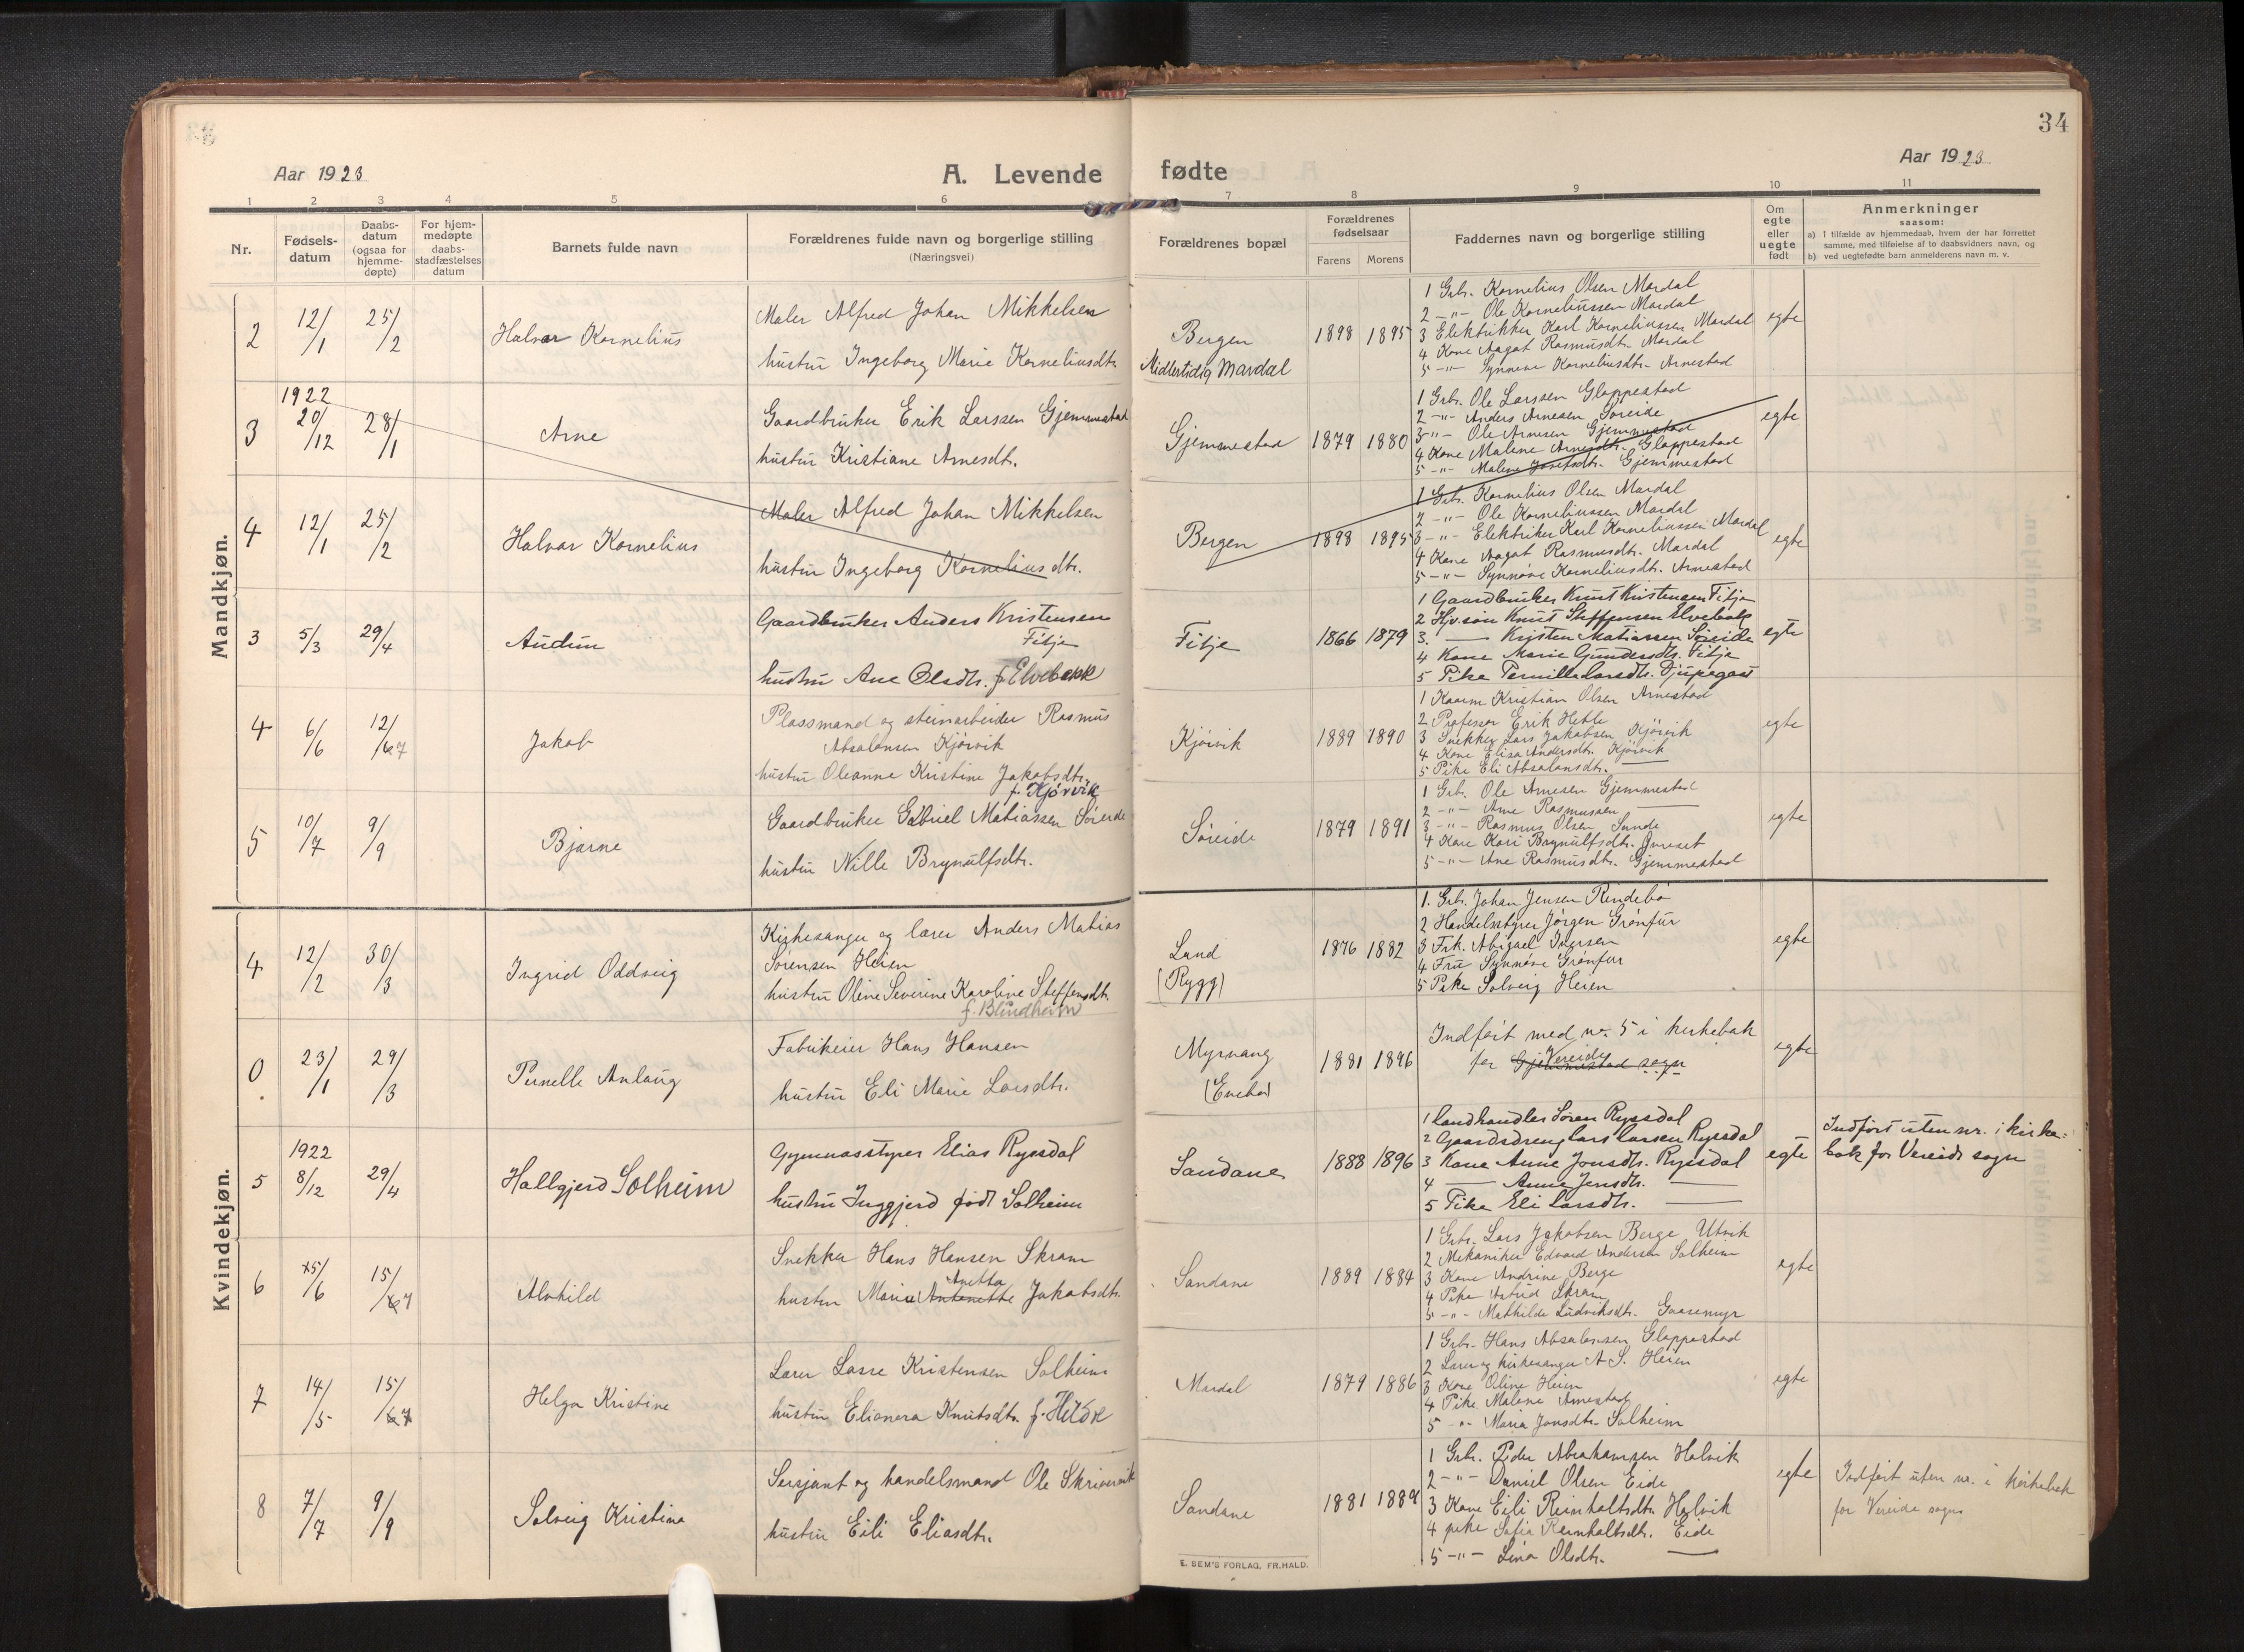 34
Aar 1923
A. Levende fødte
Aar 1923
1 2 3 4 5 6 7 8 9 10 11
Nr.
Fødsels-
datum
Daabs-
datum
(ogsaa for
hjemme-
døpte)
For hjem-
medøpte
daabs-
stadfæstelses
datum
Barnets fulde navn
Forældrenes fulde navn og borgerlige stilling
(Næringsvei)
Forældrenes bopæl
Forældrenes
fødselsaar
Farens Morens
Faddernes navn og borgerlige stilling
Om
egte
eller
uegte
født
Anmerkninger
saasom:
a) I tilfælde av hjemmedaab, hvem der har forrettet
samme, med tilføielse af to daabsvidners navn, og
b) ved uegtefødte barn anmelderens navn m. v.
Mandkjøn.
2 12/1 25/2 Halvar Kornelius
Maler Alfred Johan Mikkelsen
hustru Ingeborg Marie Korneliusdtr.
Bergen
Midlertidig Mardal
1898 1895
1 Grbr. Kornelius Olsen Mardal
2 -"- Ole Korneliussen Mardal
3 Elektrikker Karl Korneliussen Mardal
4 Kone Aagot Rasmusdtr. Mardal
5 -"- Synneve Korneliusdtr. Arnestad
egte
3 1922 20/12 28/1 Arne
Gaardbruker Erik Larssen Gjemmestad
hustru Kristiane Arnesdtr.
Gjemmestad 1879 1880
1 Grbr. Ole Larssen Gloppestad
2 -"- Anders Arnesen Søreide
3 -"- Ole Arnesen Gjemmestad
4 Kone Malene Arnesdtr. Gloppestad
5 -"- Malene Josefsdtr. Gjemmestad
egte
4 12/1 25/2 Halvar Kornelius
Maler Alfred Johan Mikkelsen
hustru Ingeborg Korneliusdtr.
Bergen 1898 1895
1 Grbr. Kornelius Olsen Mardal
2 -"- Ole Korneliussen Mardal
3 -"- Elektriker Karl Korneliussen Mardal
4 Kone Aagot Rasmusdtr. Mardal
5 -"- Synnøve Korneliusdtr. Arnestad
egte
3 5/3 29/4 Audun
Gaardbruker Anders Kristensen
Fitje
hustru Ane Olsdtr. f. Elvebakk
Fitje 1866 1879
1 Gaardbruker Knut Kristensen Fitje
2 Hjv. søn Knut Steffensen Elvebakk
3. — Kristen Matiassen Søreide
4 Kone Marie Gundersdtr. Fitje
5 Pike Pernille Larsdtr. Djupegast
egte
4 6/6 12/7 Jakob
Plassmand og steinarbeider Rasmus
Absalonsen Kjørvik
hustru Oleanne Kristine Jakobsdtr.
f. Kjørvik
Kjørvik 1889 1890
1 Kaarm Kristian Olsen Arnestad
2 Professor Erik Hetle
3 Snekker Lars Jakobsen Kjörvik
4 Kone Elisa Andersdtr. Kjörvik
5 Pike Eli Absalonsdtr. —
egte
5 10/7 9/9 Bjarne
Gaardbruker Gabriel Matiassen Søreide
hustru Nille Brynulfsdtr.
Søreide 1879 1891
1 Grbr. Ole Arnesen Gjemmestad
2 -"- Arne Rasmussen —
3 -"- Rasmus Olsen Sunde
4 Kone Kari Brynulfsdtr.
5 -"- Ane Rasmusdtr. Gjemmestad
egte
Kvindekjøn.
4 12/2 30/3 Ingrid Oddveig
Kirkesanger og lærer Anders Matias
Sørensen Heien
hustru Oline Severine Karoline Steffensdtr.
f. Blindheim
Lund
(Rygg)
1876 1882
1. Grbr. Johan Jensen Rindebø
2 Handelsstyrer Jørgen Grønfur
3 Frk. Abigael Iversen
4 Fru Synnøve Grønfur
5 Pike Solveig Heien
egte
0 23/1 29/3 Pernelle Anlaug
Fabrikeier Hans Hansen
hustru Eli Marie Larsdtr.
Myrvang
(Enebø)
1881 1896
Indført med nr. 5 i kirkebok
for Gjemmestad Vereide sogn
egte
5 1922 8/12 29/4 Hallgjerd Solheim
Gymnasstyrer Elias Ryssdal
hustru Inggjerd født Solheim
Sandane 1888 1896
1 Landhandler Søren Ryssdal
2 Gaardsdreng Lars Larsen Ryssdal
3 Kone Anne Jonsdtr. Ryssdal
4 — Anne Jensdtr. —
5 Pike Eli Larsdtr. —
egte
Indført uten nr. i kirke-
bok for Vereide sogn
6 15/6 15/7 Alvhild
Snekker Hans Hansen Skram
hustru Maria Antonette Anetta Jakobsdtr.
Sandane 1889 1884
1 Grbr. Lars Jakobsen Berge Utvik
2 Mekaniker Edvard Andersen Solheim
3 Kone Andrine Berge
4 Pike Astrid Skram
5 -"- Mathilde Ludviksdtr. Gaasemyr
egte
7 14/5 15/7 Helga Kristine
Lærer Lasse Kristensen Solheim
hustru Elionora Knutsdtr. f. Hetle
Mardal 1879 1886
1 Grbr. Hans Absalonsen Gloppestad
2 Lærer og kirkesanger A. S. Heien
3 Kone Oline Heien
4 Pike Malene Arnestad
5 -"- Maria Jonsdtr. Solheim
egte
8 7/7 9/9 Solveig Kristine
Sersjant og handelsmand Ole Skrivervik
hustru Eili Eliasdtr.
Sandane 1881 1889
1 Grbr. Peder Abrahamsen Holvik
2 -"- Daniel Olsen Eide
3 Kone Eili Reinholtsdtr. Holvik
4 pike Sofia Reinholtsdtr. Eide
5 -"- Lina Olsdtr. —
egte
Indført uten nr. i kirkebok
for Vereide sogn
E. SEM'S FORLAG, FR.HALD.